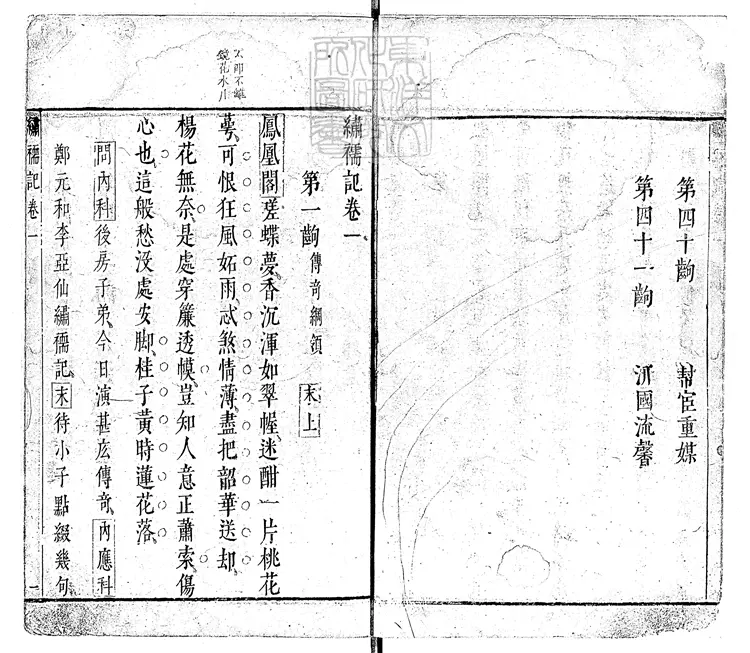 第四十齣 幇宦重媒
第四十一齣 汧國流馨
繡襦記卷一
第一齣 傳奇綱領 末上
鳳凰閣蹉蝶夢香沉渾如翠幄迷酣一片桃花
萼可恨狂風妬雨忒煞情薄盡把韶華送却
楊花無奈是處穿簾透幙豈知人意正蕭索傷
心也這般愁没處安脚桂子黄時蓮花落
問內科後房子弟今日演甚庅傳奇內應科
鄭元和李亞仙繡襦記末待小子點綴幾句
繡襦記卷一
一
不即不離
鏡花水月